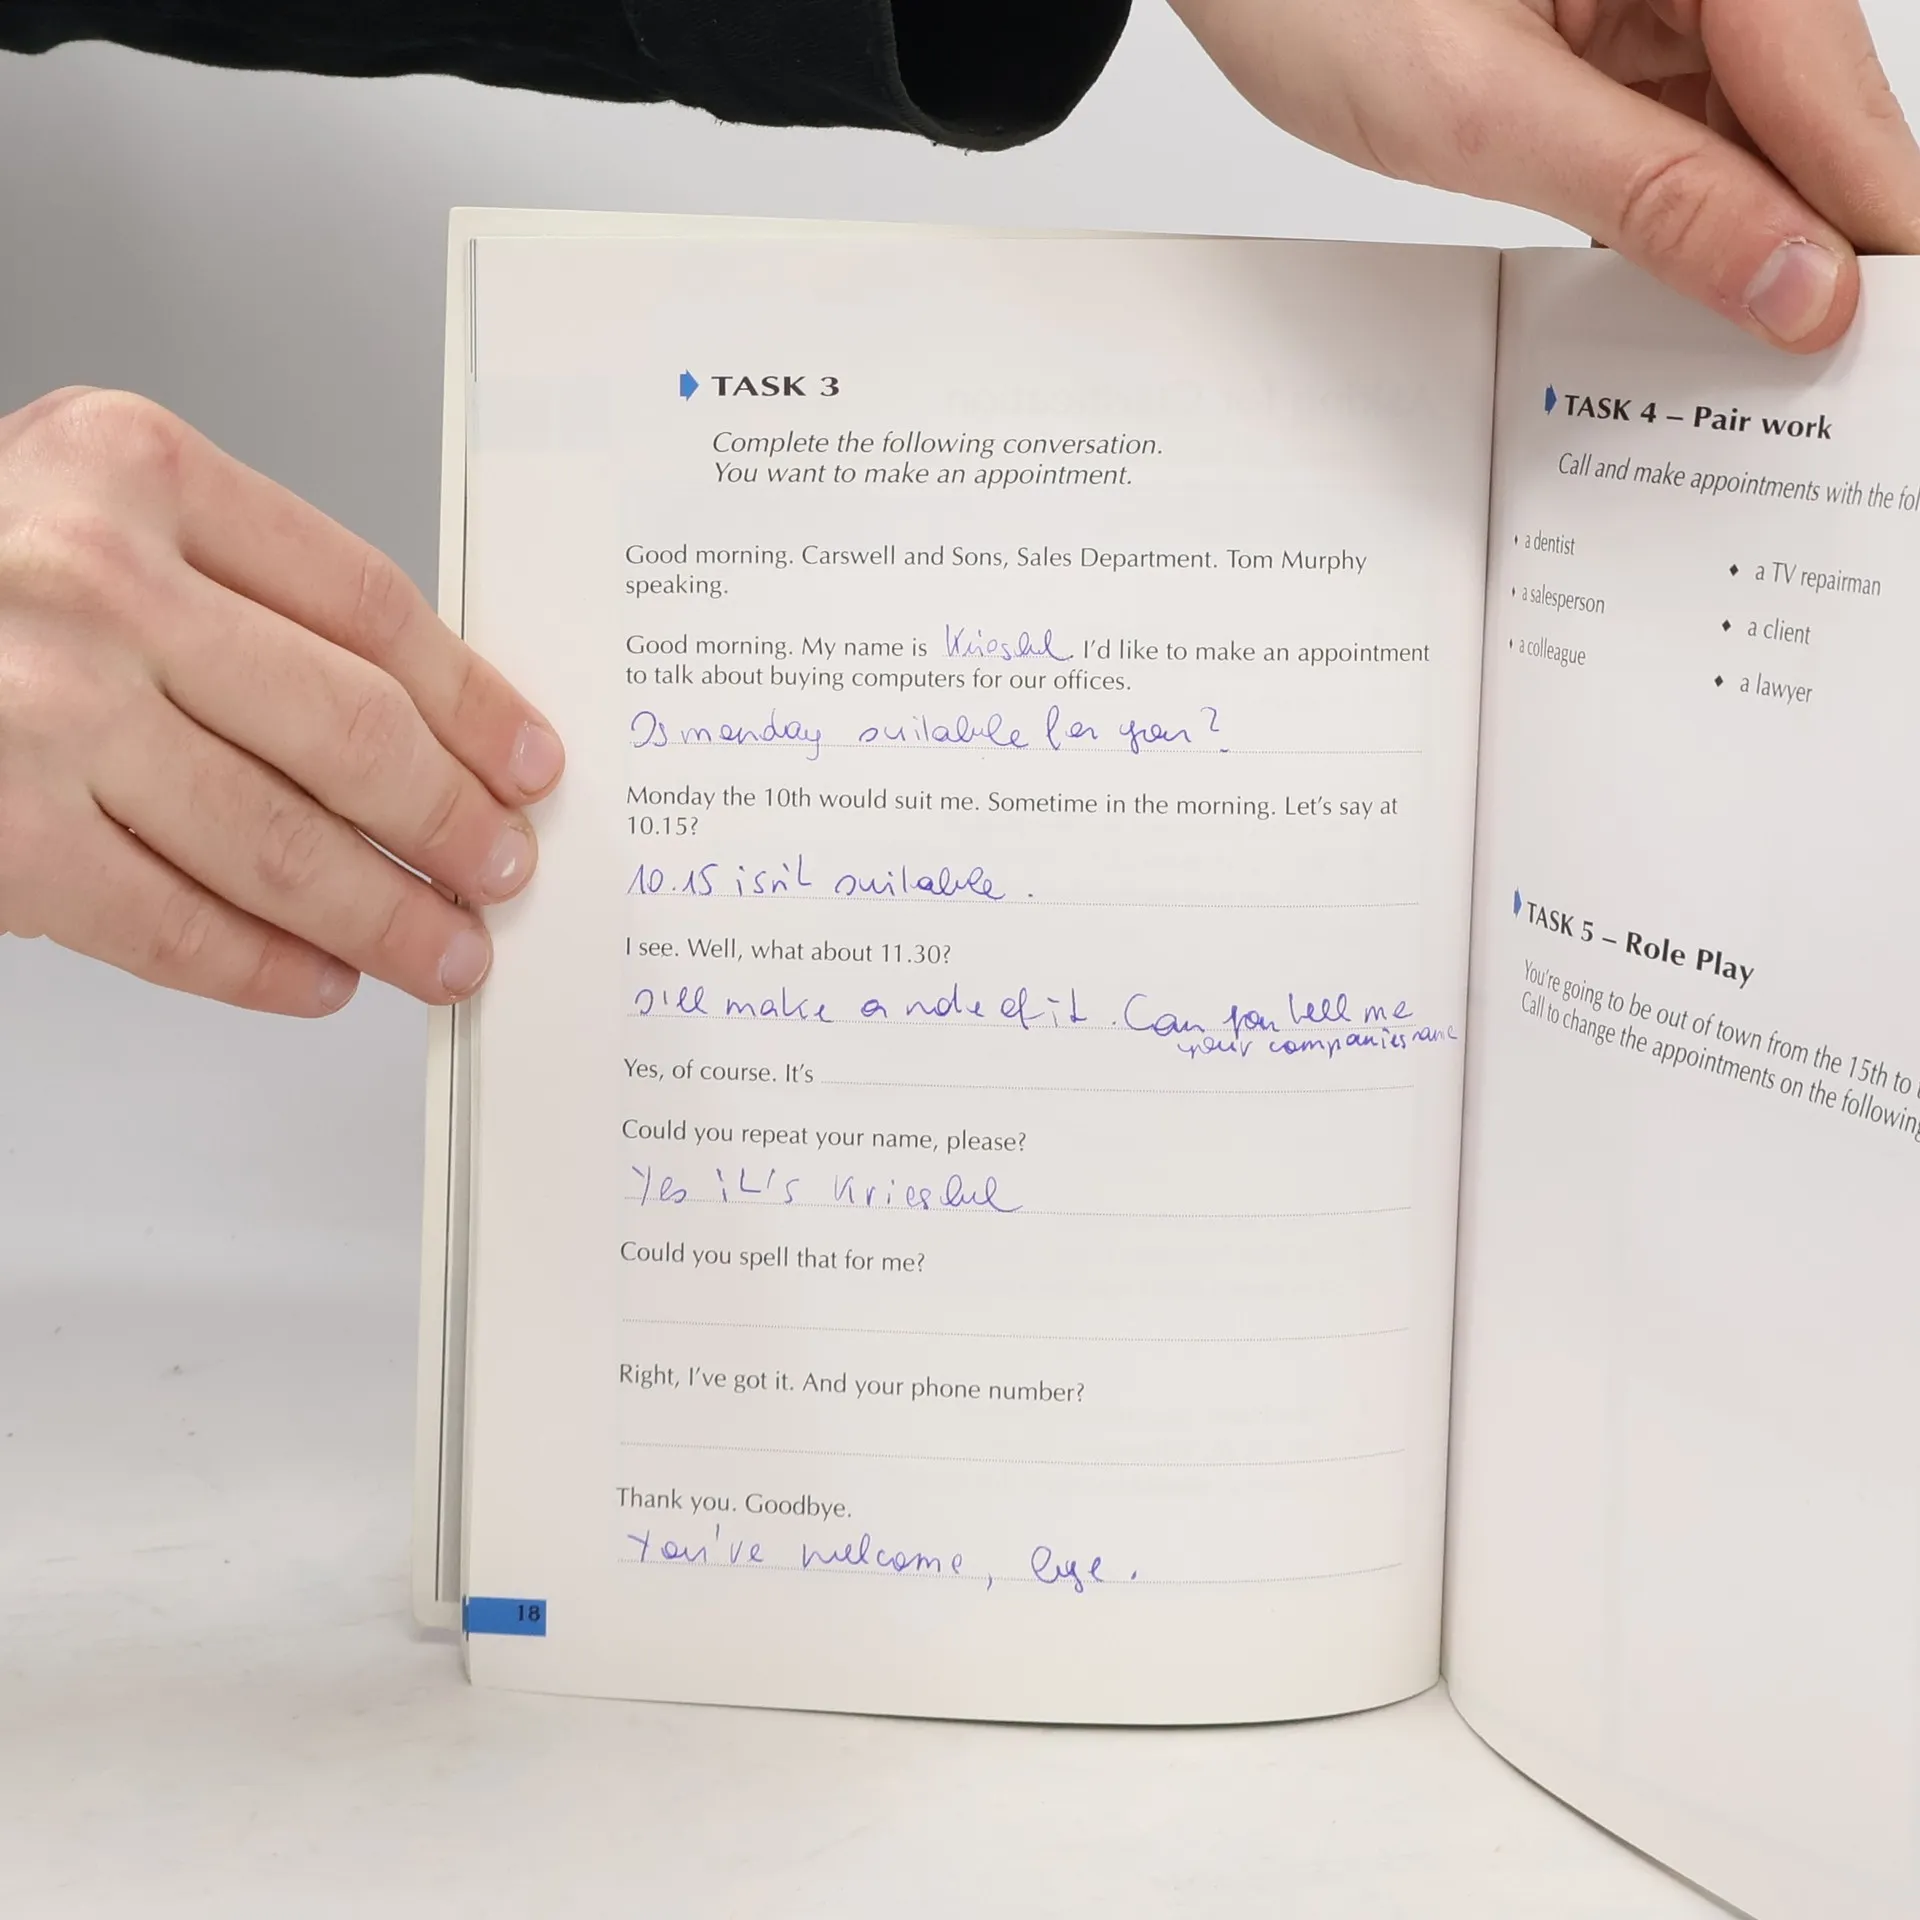 TASK 3
Complete the following conversation.
You want to make an appointment.
Good morning. Carswell and Sons, Sales Department. Tom Murphy
speaking.
Good morning. My name is . I'd like to make an appointment
to talk about buying computers for our offices.
Is monday suitable for you?
Monday the 10th would suit me. Sometime in the morning. Let's say at
10.15?
10.15 isn't suitable.
I see. Well, what about 11.30?
I'll make a note of it. Can you tell me
your companies name
Yes, of course. It's
Could you repeat your name, please?
Yes it's
Could you spell that for me?
Right, I've got it. And your phone number?
Thank you. Goodbye.
You've welcome, bye.
18
TASK 4 – Pair work
Call and make appointments with the fol
• a dentist
• a salesperson
• a colleague
♦ a TV repairman
♦ a client
♦ a lawyer
TASK 5 – Role Play
You're going to be out of town from the 15th to
Call to change the appointments on the following